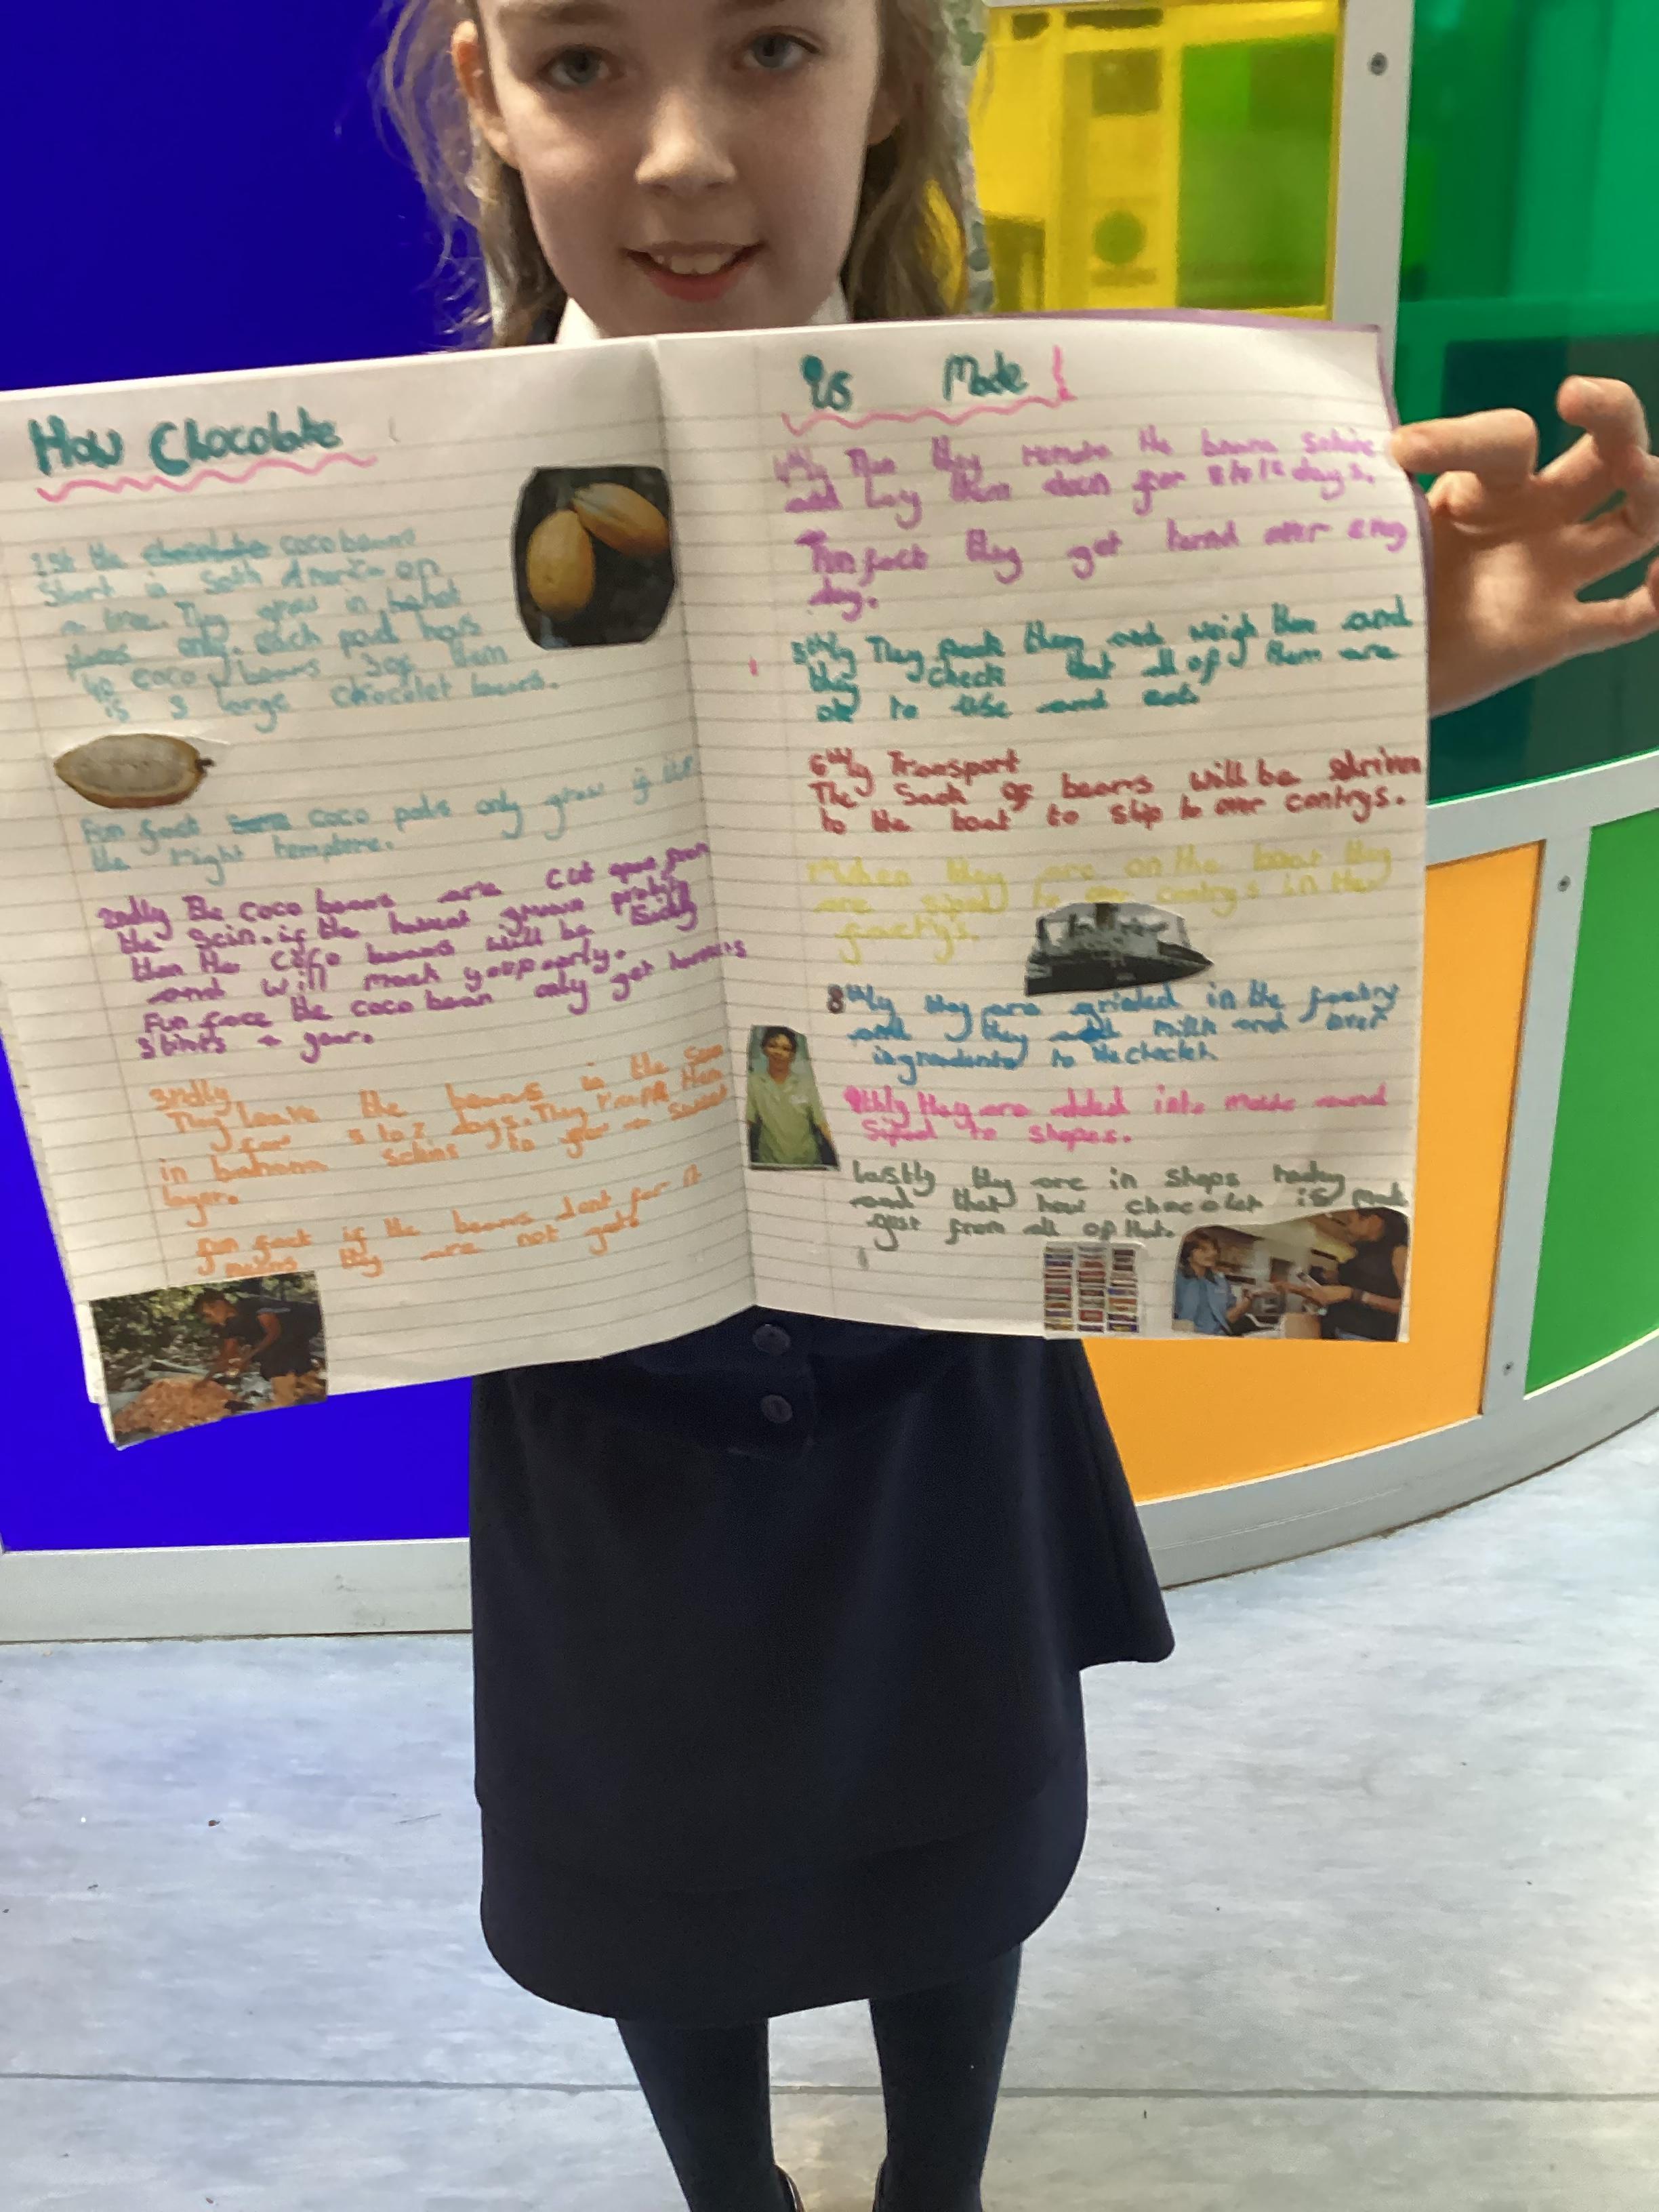 How Chocolate
1st the coco beans
Start in Soth America on
a tree. They grow in
only. each pod has
40 coco beans 30f them
is 3 large chocolet beans.
Fun fact coco pods only grow if it's
the right tempture.
2ndly the coco beans are cut open from
the Scin. if the havest grows
then the coco beans will be
and will
Fun face the coco bean only get
3 times a year.
3rdly
They leave the beans in the Sun
for 5 to 7 days. They them
in banana Scins to get a Sweet
layer.
fun fact if the beans dont for it
means they are not
is Made!
4thly Then they remove the beans
and Lay them down for 8 to days.
Fun fact they get turnd over evry
day.
5thly They pack them and weigh them and
they check that all of them are
ok to use and eat
6thly Transport
The Sack of beans will be driven
to the boat to ship to over contrys.
When they are on the boat they
are to over contrys in the
factiy's.
8thly they are grinded in the factry
and they add milk and over
ingredients to the choclet.
9thly they are added into
to shapes.
Lastly they are in Shops
and that how chocolet is made
gust from all of that.